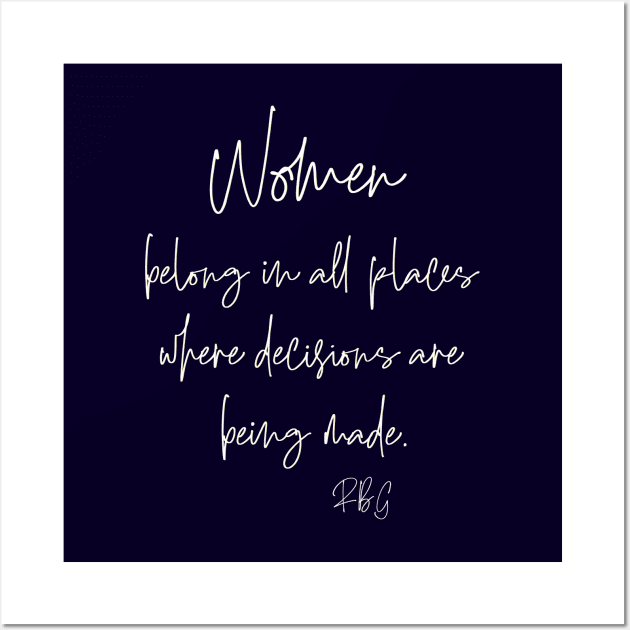 Women
belong in all places
where decisions are
being made.
RBG